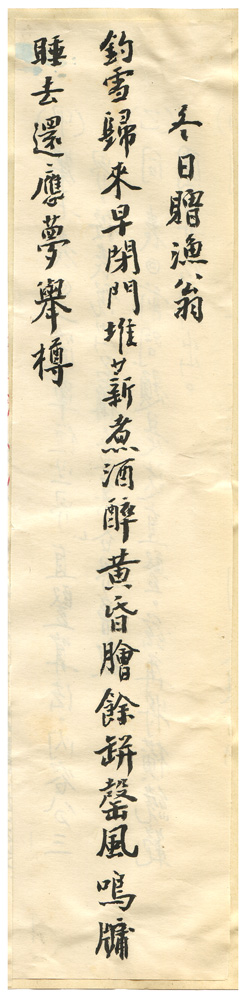 冬日贈漁翁
釣雪歸來早閉門堆薪煮酒醉黃昏膾餘缾罄風鳴牖
睡去還應夢舉樽